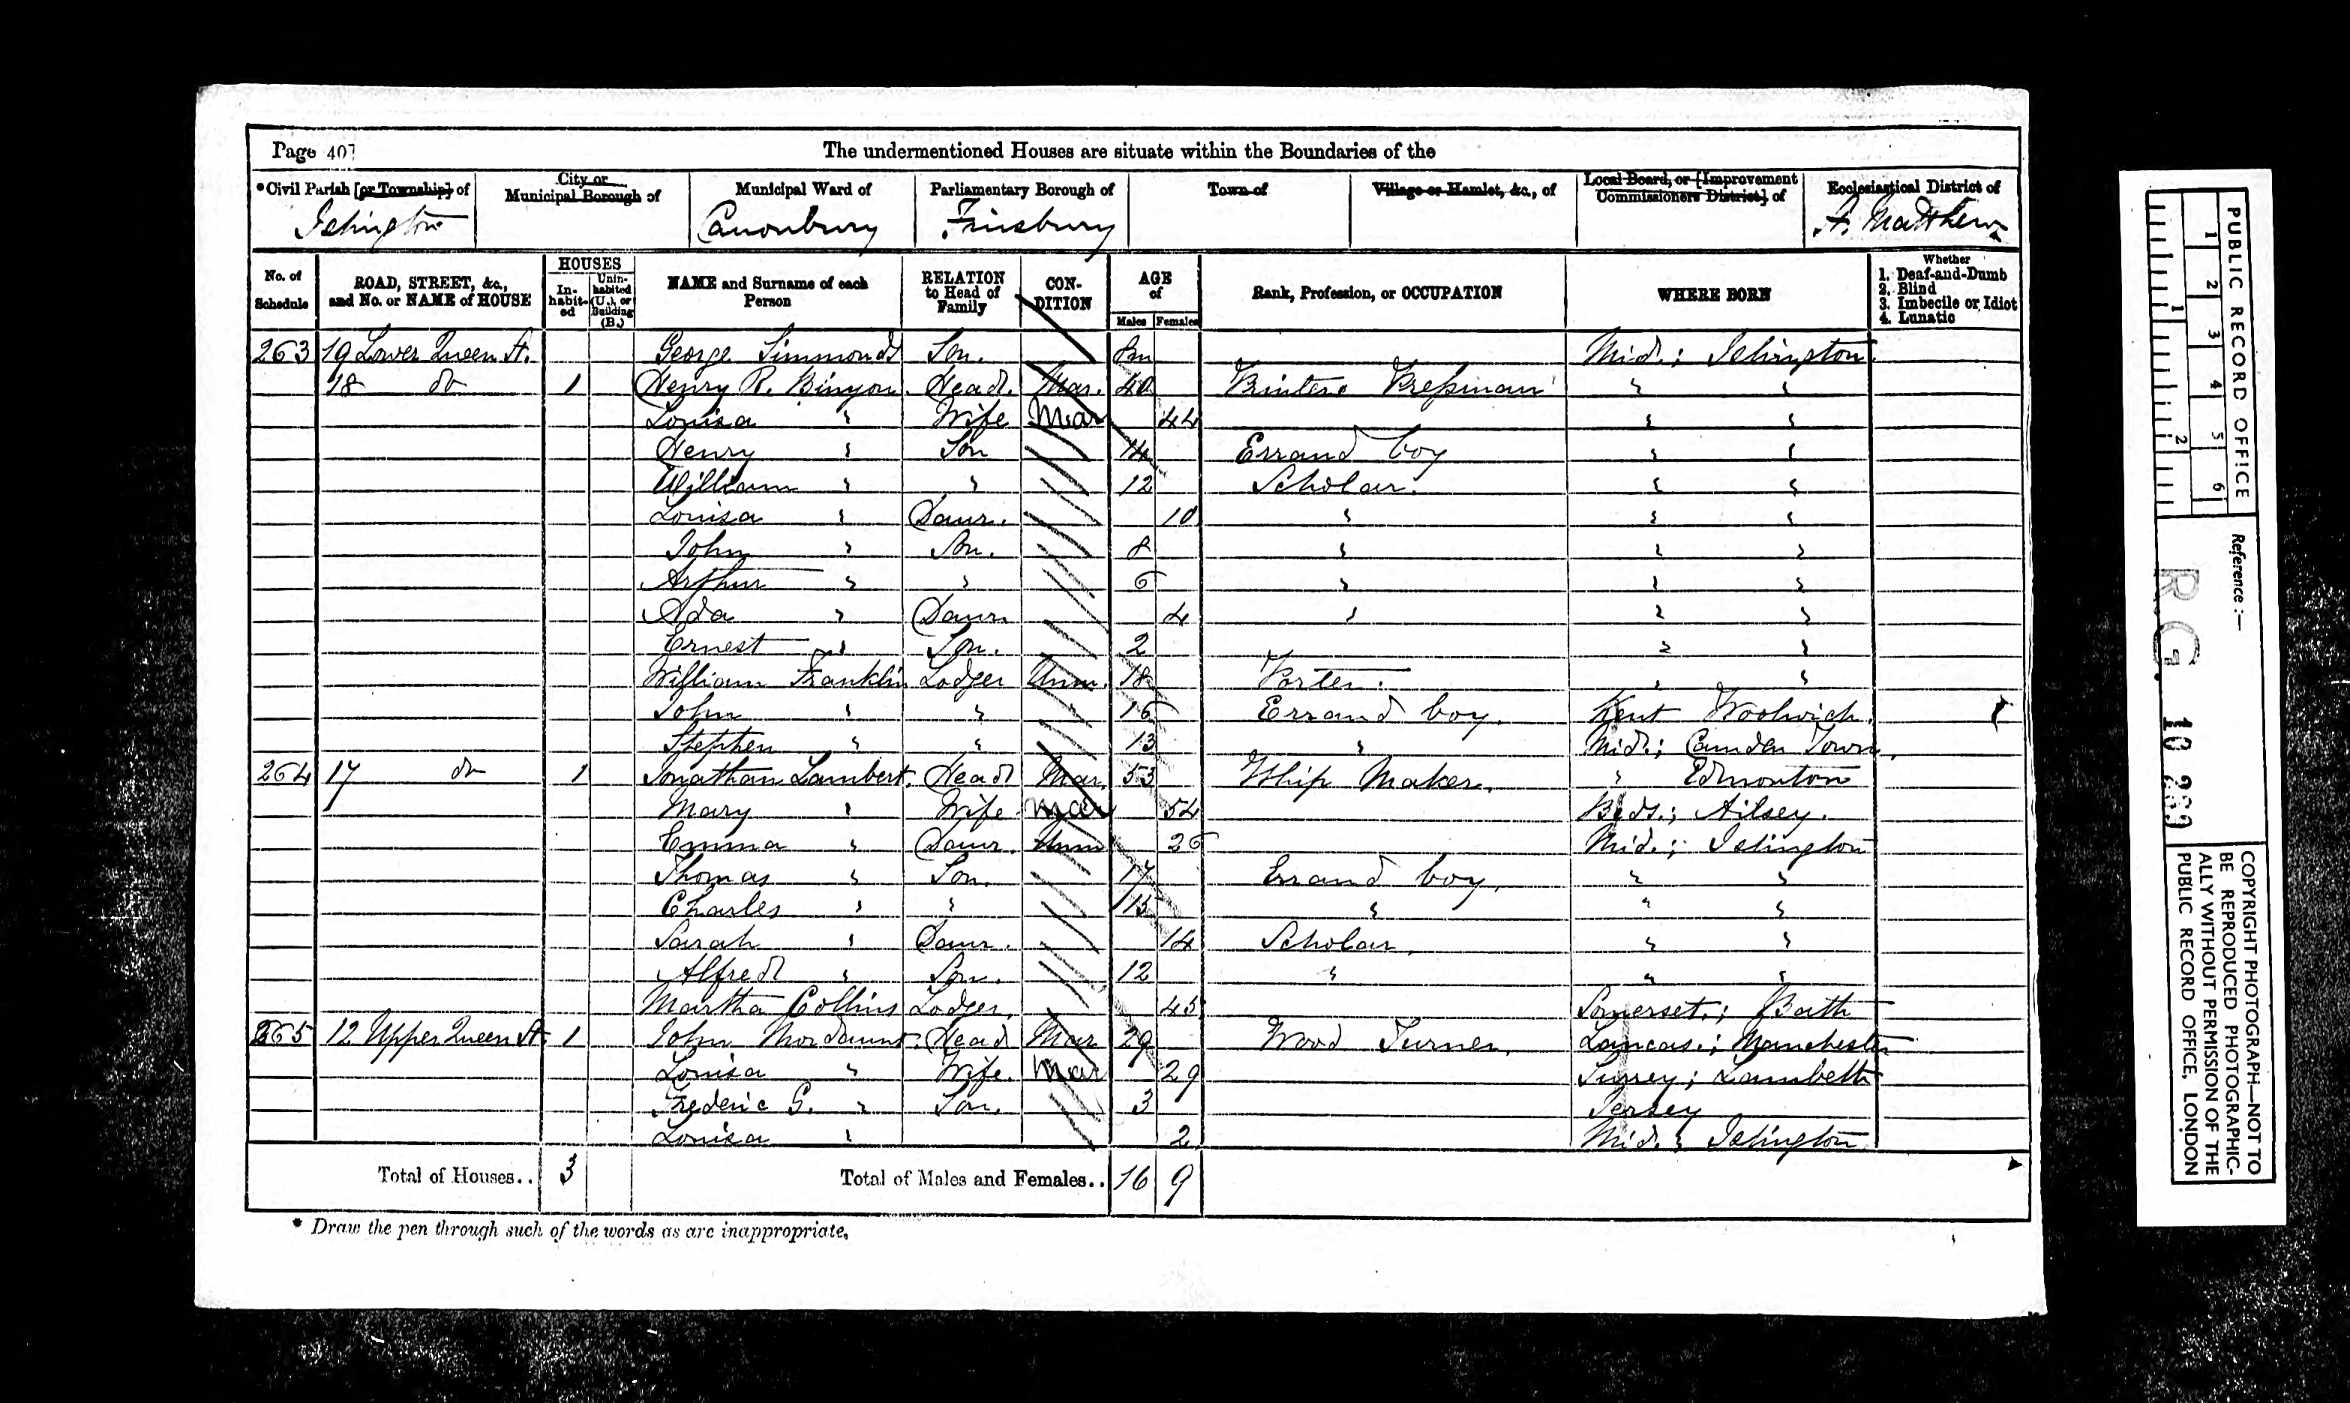 Page 407 The undermentioned Houses are situate within the Boundaries of the
*Civil Parish [or Township] of City or Municipal Borough of Municipal Ward of Parliamentary Borough of Town of Village or Hamlet, &c., of Local Board, or [Improvement Commissioners District] of Ecclesiastical District of
Islington Canonbury Finsbury St. Matthews
No. of Schedule ROAD, STREET, &c., and No. or NAME of HOUSE HOUSES In-habit-ed Unin-habited (U.), or Building (B.) NAME and Surname of each Person RELATION to Head of Family CON-DITION AGE of Males Females Rank, Profession, or OCCUPATION WHERE BORN Whether 1. Deaf-and-Dumb 2. Blind 3. Imbecile or Idiot 4. Lunatic
263 19 Lower Queen St. George Simmonds Son. 8m Mid.; Islington.
18 do 1 Henry R. Binyon. Head. Mar. 40 Printers Pressman " "
Louisa " Wife Mar 44 " "
Henry " Son 14 Errand boy " "
William " " 12 Scholar. " "
Louisa " Daur. 10 " " "
John " Son. 8 " " "
Arthur " " 6 " " "
Ada " Daur 4 " " "
Ernest " Son. 2 " "
William Franklin Lodger Unm. 18 Porter. " "
John " " 16 Errand boy. Kent Woolwich.
Stephen " " 13 " Mid.; Camden Town.
264 17 do 1 Jonathan Lambert. Head Mar. 53 Whip Maker. " Edmonton
Mary " Wife Mar 54 Beds.; Ailsey.
Emma " Daur. Unm 26 Mid.; Islington
Thomas " Son. 17 Errand boy. " "
Charles " " 15 " " "
Sarah " Daur. 14 Scholar. " "
Alfred " Son. 12 " " "
Martha Collins Lodger. 45 Somerset.; Bath
265 12 Upper Queen St 1 John Mordaunt. Head Mar 29 Wood Turner. Lancas.; Manchester
Louisa " Wife. Mar 29 Surrey; Lambeth
Frederic G. " Son. 3 Jersey
Louisa " 2 Mid.; Islington
Total of Houses.. 3 Total of Males and Females.. 16 9
* Draw the pen through such of the words as are inappropriate.
PUBLIC RECORD OFFICE
1 2 3 4 5 6
1 2
Reference:—
R.G. 10 269
COPYRIGHT PHOTOGRAPH—NOT TO
BE REPRODUCED PHOTOGRAPHIC-
ALLY WITHOUT PERMISSION OF THE
PUBLIC RECORD OFFICE, LONDON